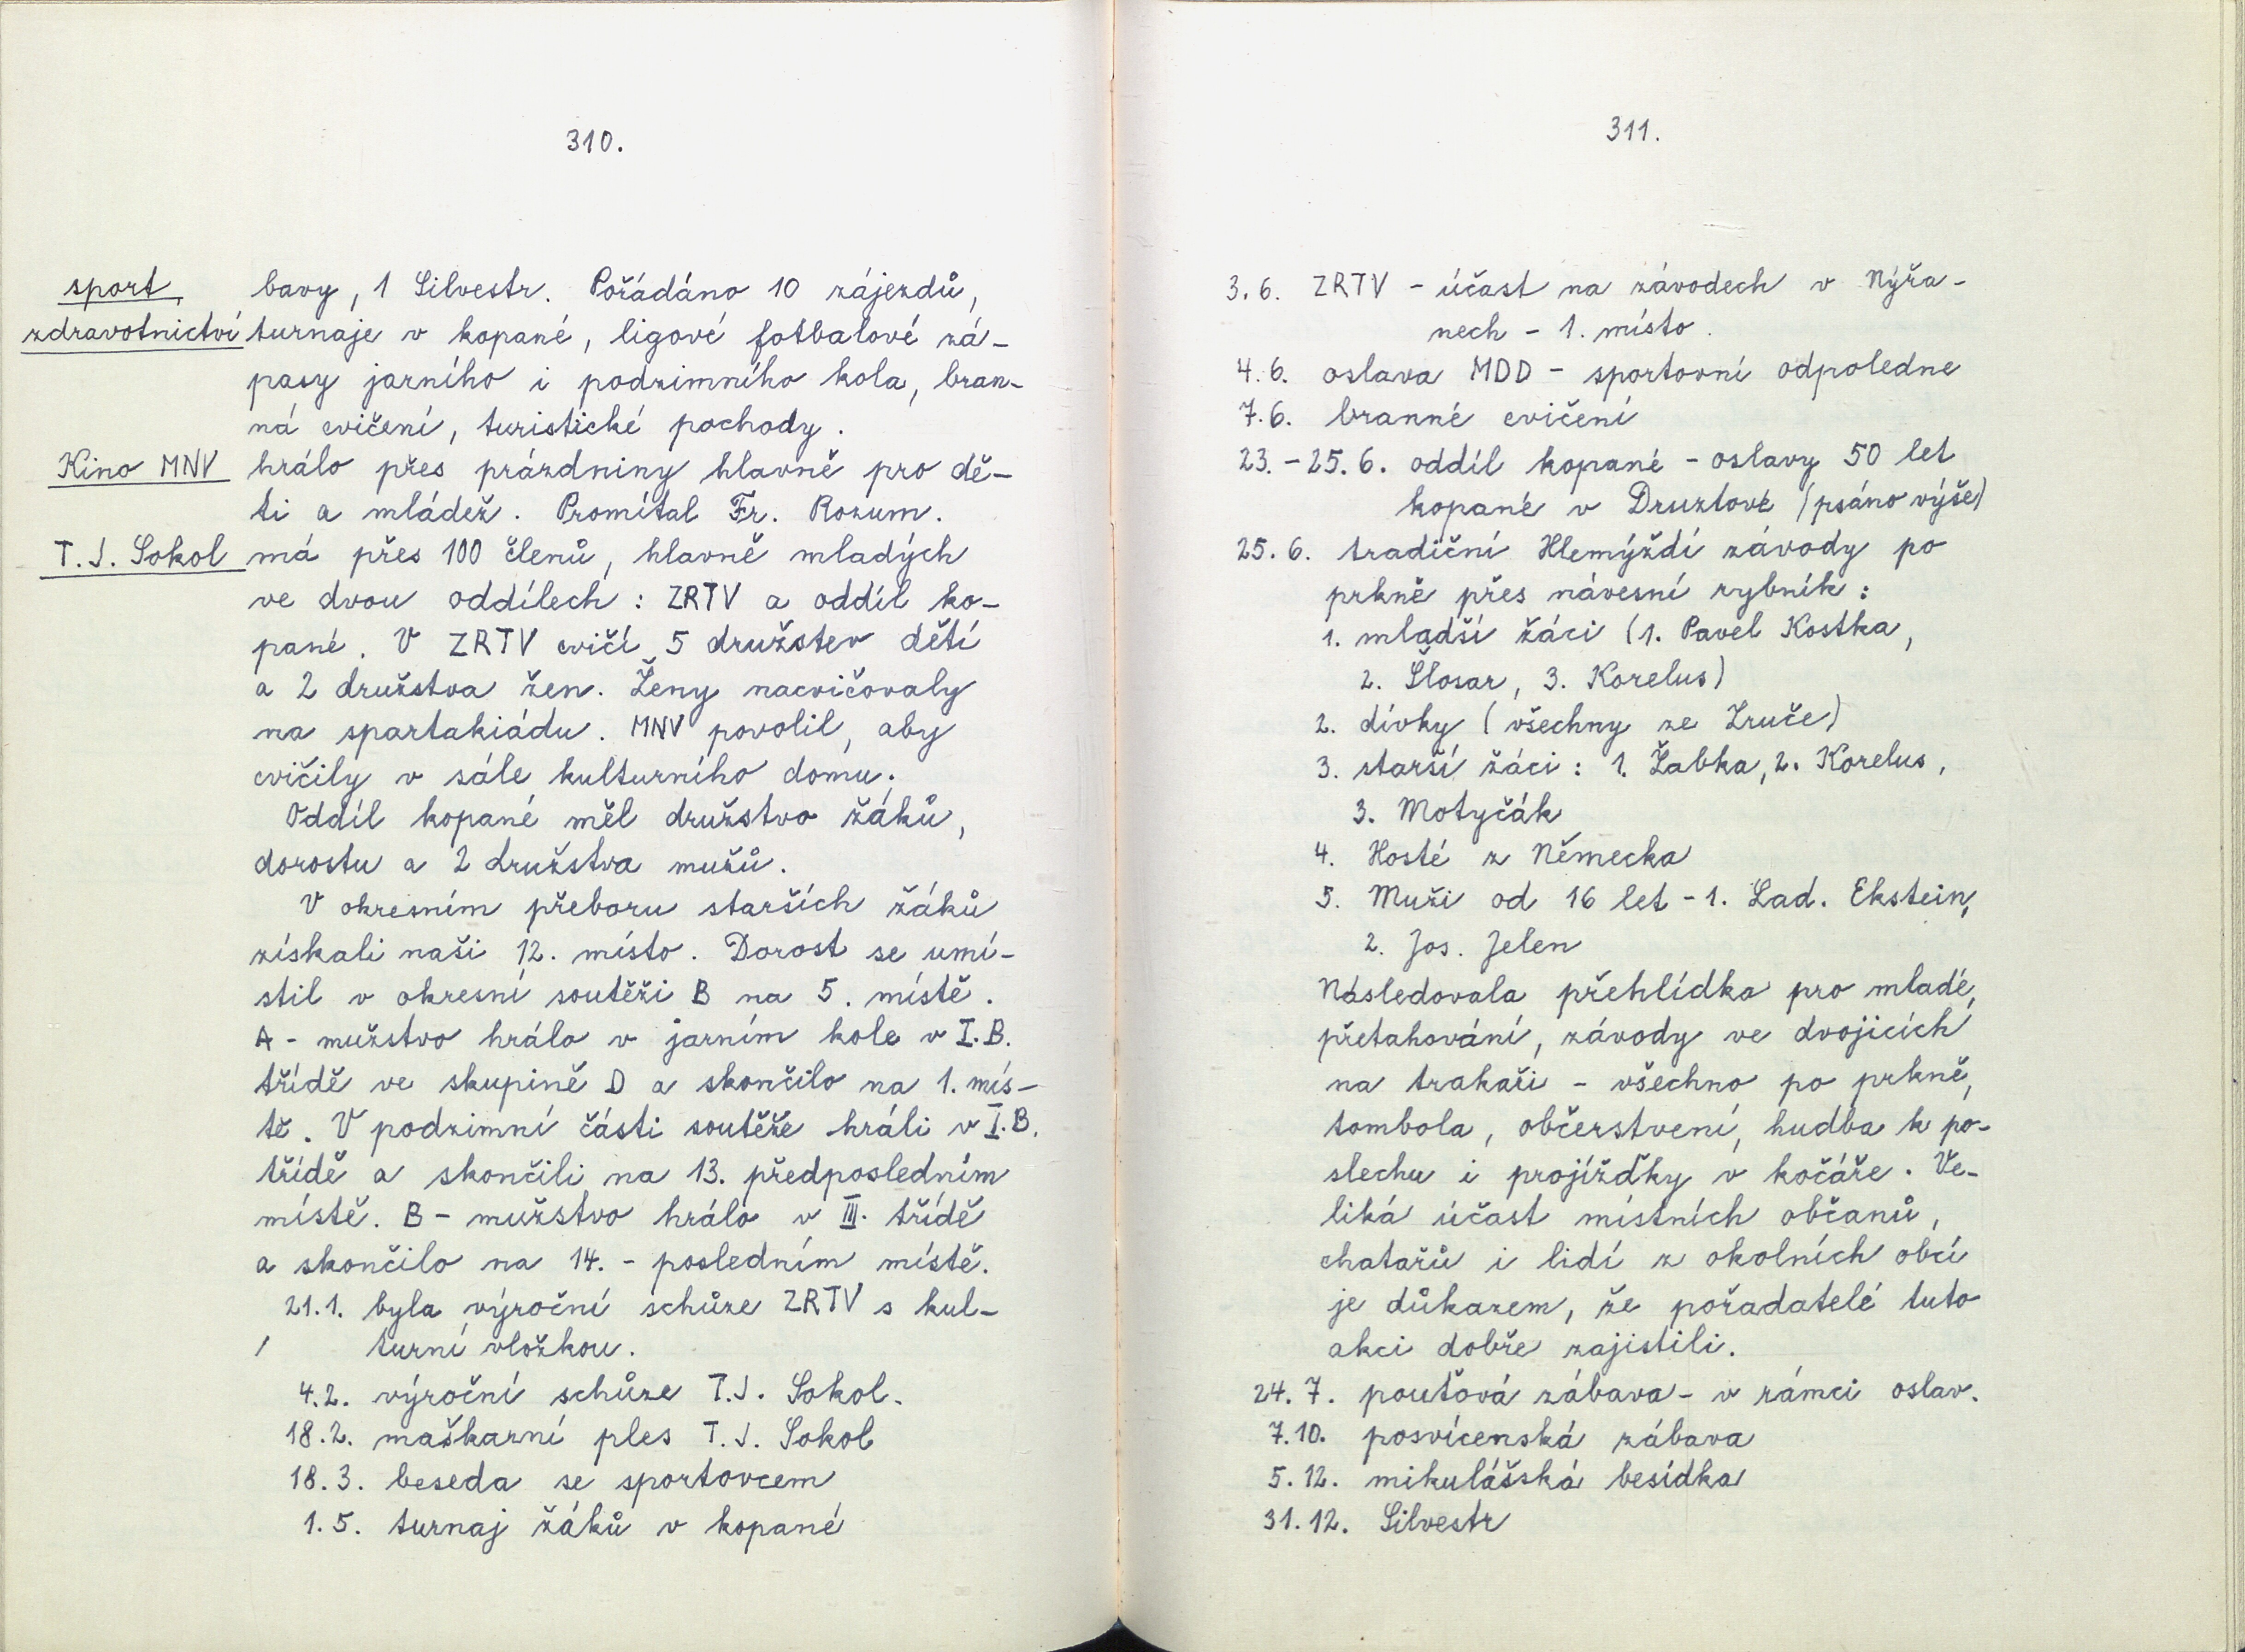 310.
sport,
zdravotnictví
bavy, 1 Silvestr. Pořádáno 10 zájezdů,
turnaje v kopané, ligové fotbalové zá-
pasy jarního i podzimního kola, bran-
ná cvičení, turistické pochody.
Kino MNV hrálo přes prázdniny hlavně pro dě-
ti a mládež. Promítal Fr. Rozum.
T.J. Sokol má přes 100 členů, hlavně mladých
ve dvou oddílech: ZRTV a oddíl ko-
pané. V ZRTV cvičí 5 družstev dětí
a 2 družstva žen. Ženy nacvičovaly
na spartakiádu. MNV povolil, aby
cvičily v sále kulturního domu.
Oddíl kopané měl družstvo žáků,
dorostu a 2 družstva mužů.
V okresním přeboru starších žáků
získali naši 12. místo. Dorost se umí-
stil v okresní soutěži B na 5. místě.
A - mužstvo hrálo v jarním kole v I.B.
třídě ve skupině D a skončilo na 1. mís-
tě. V podzimní části soutěže hráli v I.B.
třídě a skončili na 13. předposledním
místě. B - mužstvo hrálo v III. třídě
a skončilo na 14. - posledním místě.
21.1. byla výroční schůze ZRTV s kul-
turní vložkou.
4.2. výroční schůze T.J. Sokol.
18.2. maškarní ples T.J. Sokol
18.3. beseda se sportovcem
1.5. turnaj žáků v kopané
311.
3.6. ZRTV - účast na závodech v Nýřa-
nech - 1. místo.
4.6. oslava MDD - sportovní odpoledne
7.6. branné cvičení
23.-25.6. oddíl kopané - oslavy 50 let
kopané v Druztové (psáno výše)
25.6. tradiční Hlemýždí závody po
prkně přes návesní rybník:
1. mladší žáci (1. Pavel Kostka,
2. Šlosar, 3. Korelus)
2. dívky (všechny ze Zruče)
3. starší žáci: 1. Žabka, 2. Korelus,
3. Motyčák
4. Hosté z Německa
5. Muži od 16 let - 1. Lad. Ekstein,
2. Jos. Jelen
Následovala přehlídka pro mladé,
přetahování, závody ve dvojicích
na trakaři - všechno po prkně,
tombola, občerstvení, hudba k po-
slechu i projížďky v kočáře. Ve-
liká účast místních občanů,
chatařů i lidí z okolních obcí
je důkazem, že pořadatelé tuto
akci dobře zajistili.
24.7. pouťová zábava - v rámci oslav.
7.10. posvícenská zábava
5.12. mikulášská besídka
31.12. Silvestr